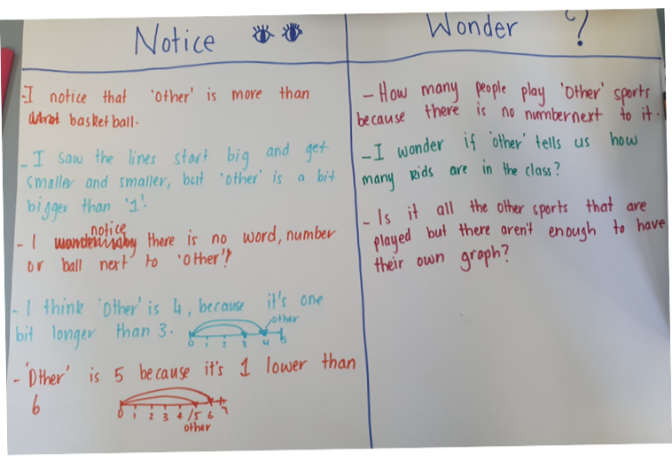 Notice
-I notice that 'other' is more than
basketball.
-I saw the lines start big and get
smaller and smaller, but 'other' is a bit
bigger than '1'.
notice
- I there is no word, number
or ball next to 'other'!
-I think 'other' is 4, because it's one
bit longer than 3.
other
0 1 2 3 4 5
- 'Other' is 5 because it's 1 lower than
6
0 1 2 3 4 5 6 7
other
Wonder ?
- How many people play 'Other' sports
because there is no number next to it.
-I wonder if 'other' tells us how
many kids are in the class?
- Is it all the other sports that are
played but there aren't enough to have
their own graph?